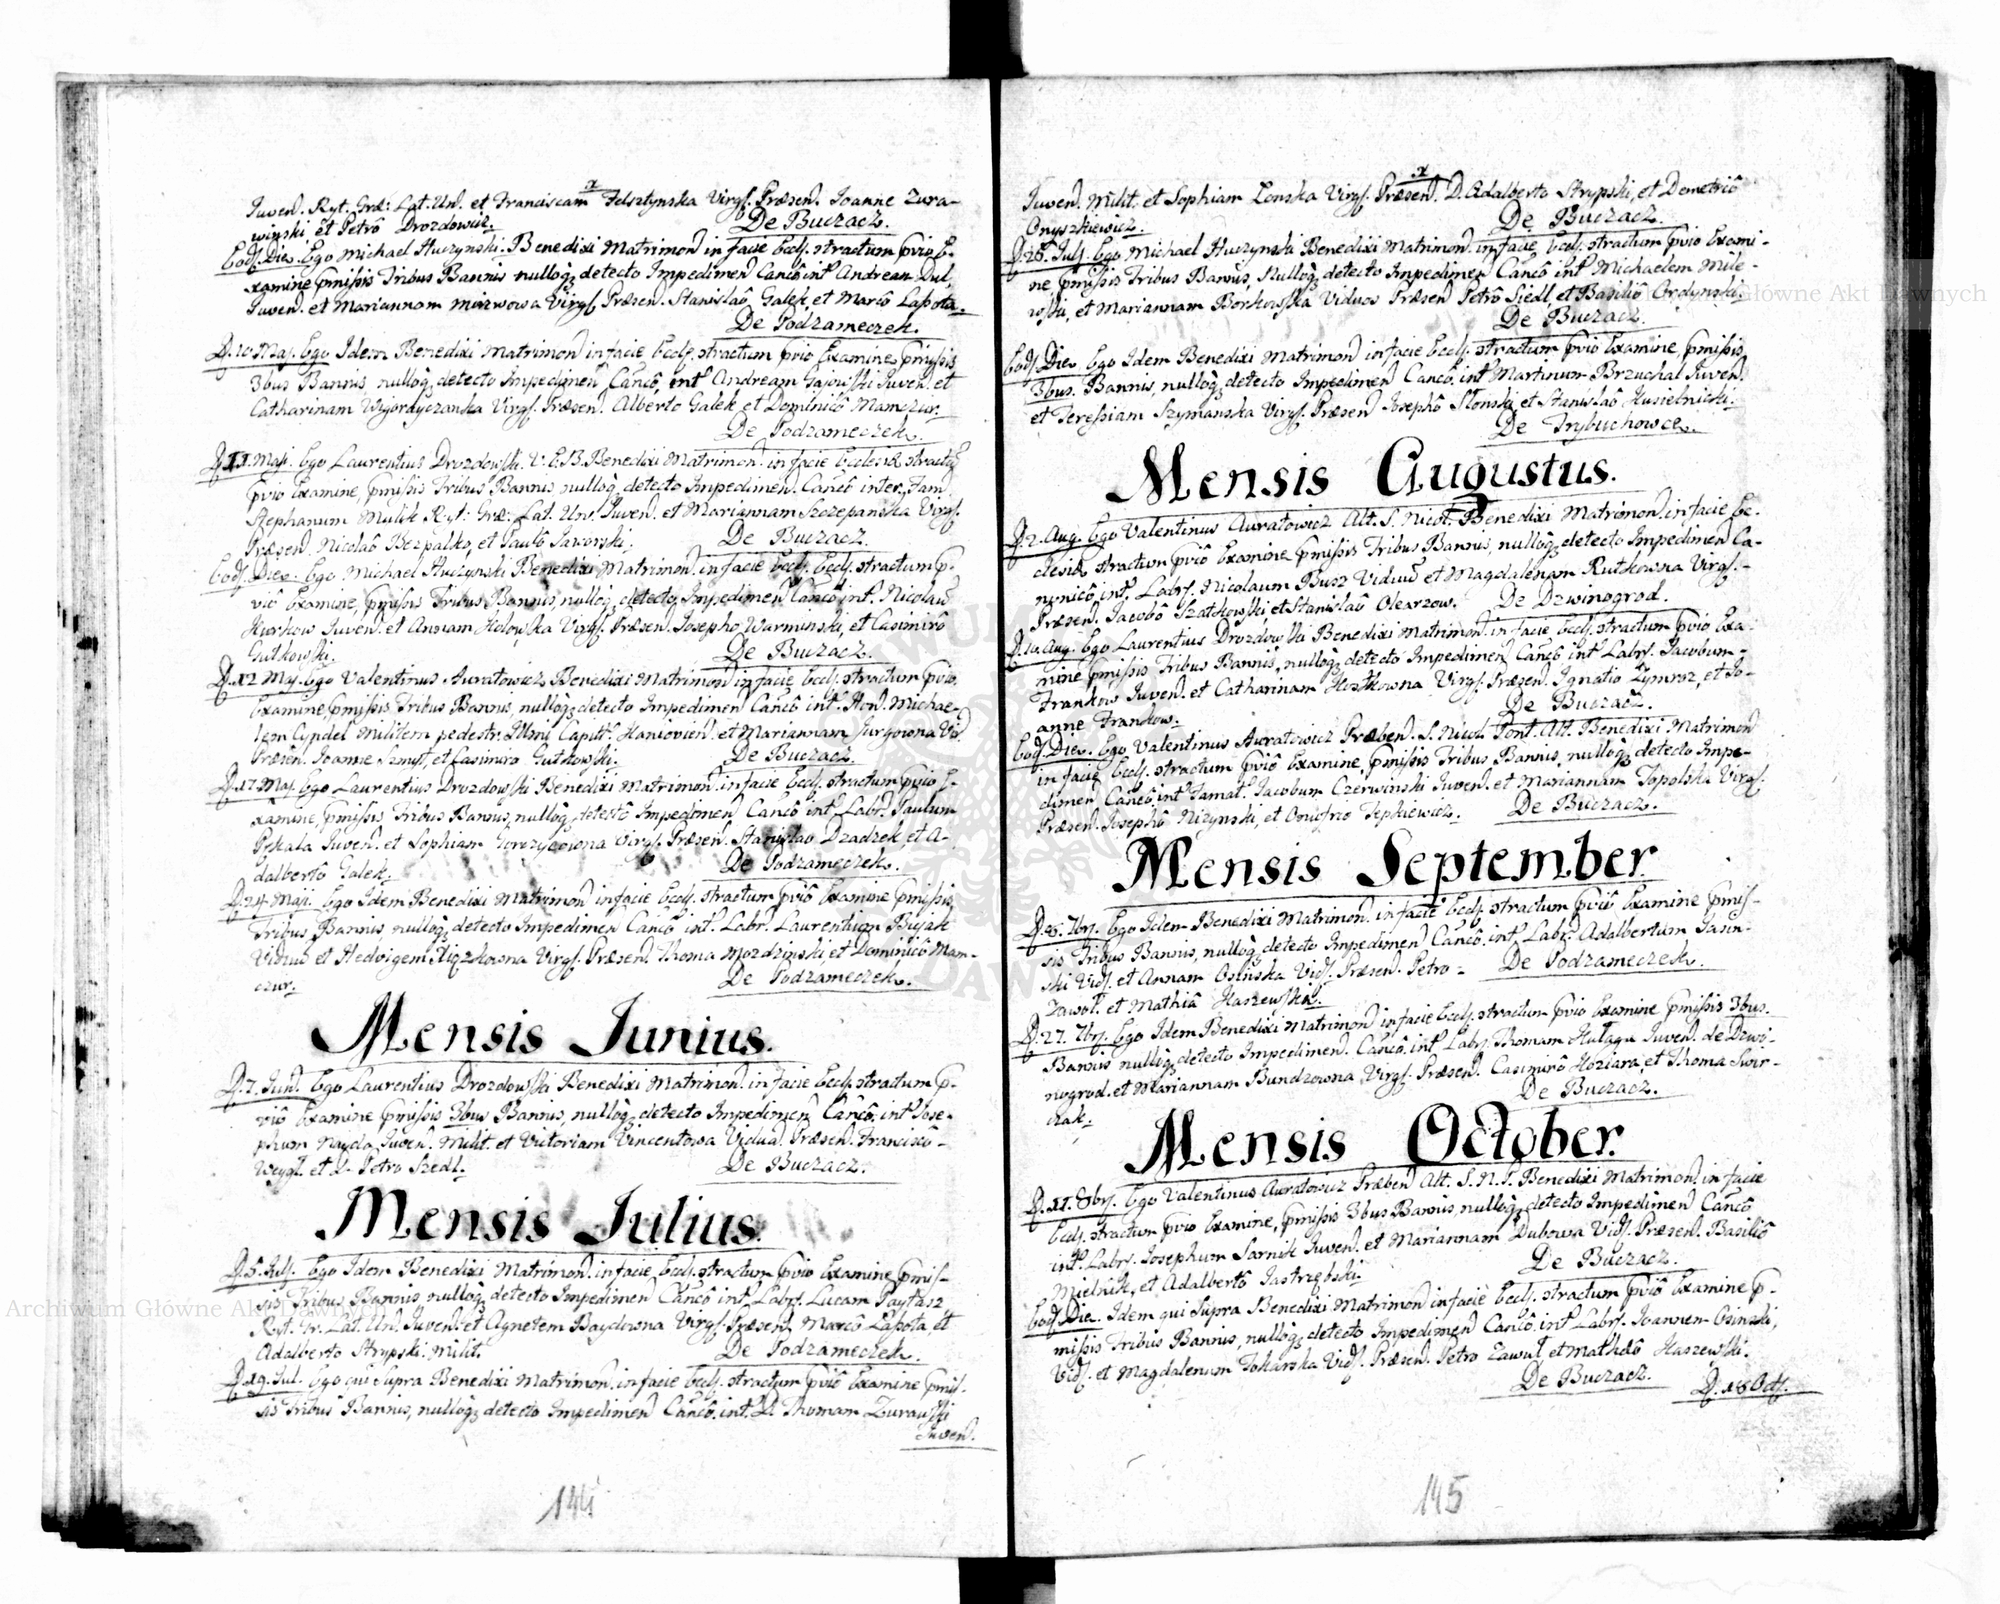 x
Juven. Ryt. Græ: Lat. Un. et Franciscam Felsztynska Virg. Præsen. Joanne Zura-
winski, et Petrô Drozdowicz.
De Buczacz.
Eod. Die. Ego Michael Huczynski Benedixi Matrimon in facie Eccl. stractum pvio E-
xamine pmissis Tribus Bannis nulloq detecto Impedimen Cancô int Andream Dul,
Juven. et Mariannam Mierwowa Virg. Præsen. Stanislaô Galek, et Marcô Lassota.
De Podzameczek.
D. 10. Maj. Ego Idem Benedixi Matrimon in facie Eccl. stractum pvio Examine pmissis
3bus Bannis nulloq detecto Impedimen Cancô, int Andream Gajowski Juven. et
Catharinam Wijordyczanka Virg. Præsen. Alberto Galek et Dominicô Mamczur.
De Podzameczek.
D. 11. Maji. Ego Laurentius Drozdowski. V. E. B. Benedixi Matrimon. in facie Ecclesiæ stractu
pvio Examine, pmissis Tribus Bannis, nulloq detecto Impedimen. Cancô inter Fam.
Stephanum Mulik Ryt: Græ: Lat. Un. Juven. et Mariannam Szczepanska Virg.
Præsen. Nicolaô Bezpalko, et Paulô Jaworski.
De Buczacz.
Eod. Die. Ego Michael Huczynski Benedixi Matrimon. in facie Eccl. Eccl. stractum p-
viô Examine, pmissis Tribus Bannis, nulloq detecto Impedimen Cancô int. Nicolaum
Hurkow Juven. et Annam Holowska Virg. Præsen. Josepho Warminski, et Casimirô
Gutkowski.
De Buczacz.
D. 12 Maj. Ego Valentinus Auratowicz Benedixi Matrimon in facie Eccl. stractum pvio
Examine, pmissis Tribus Bannis, nulloq detecto Impedimen Cancô int. Hon. Michae-
lem Cyndel Militem pedestr. Illmi Capit. Haniovien. et Mariannam Jurgowna Vid.
Præsen. Joanne Szmyt, et Casimiro Gutkowski.
De Buczacz.
D. 17. Maj. Ego Laurentius Drozdowski Benedixi Matrimon. in facie Eccl. stractum pvio E-
xamine, pmissis Tribus Bannis, nulloq detectô Impedimen Cancô int Labr. Paulum
Pskala Juven. et Sophiam Gorzycowna Virg. Præsen. Stanislao Dzadzek et A-
dalbertô Galek.
De Podzameczek.
D. 24. Maji. Ego Idem Benedixi Matrimon in facie Eccl. stractum pviô Examine pmissis
Tribus Bannis, nulloq detecto Impedimen Cancô int. Labr. Laurentium Bijak
Viduu et Hedvigem Xiązkowna Virg. Præsen. Thoma Mozdzinski, et Dominicô Mam-
czur.
De Podzameczek.
Mensis Junius.
D. 7. Jun. Ego Laurentius Drozdowski Benedixi Matrimon. in facie Eccl. stractum p-
viô Examine pmissis 3bus Bannis, nulloq detecto Impedimen Cancô. int Jose-
phum Nayda Juven. Milit. et Victoriam Vincentowa Vidua. Præsen. Franciscô-
Weygl. et D. Petro Szedl.
De Buczacz.
Mensis Julius.
D. 5. Julj. Ego Idem Benedixi Matrimon. in facie Eccl. stractum pvio Examine pmis-
sis Tribus Bannis nulloq detecto Impedimen Cancô int. Labr. Lucam Paytasz
Ryt. Gr. Lat. Un. Juven. et Agnetem Baydowna Virg. Præsen. Marcô Lassota, et
Adalberto Strypski Milit.
De Podzameczek.
D. 19. Jul. Ego qui Supra Benedixi Matrimon. in facie Eccl. stractum pviô Examine pmis-
sis Tribus Bannis, nulloq detecto Impedimen Cancô. int. Thomam Zurawski
Juven.
144
x
Juven. Milit. et Sophiam Lonska Virg. Præsen. D. Adalberto Strypski, et Demetriô
Onyszkiewicz.
De Buczacz.
D. 26. Julj. Ego Michael Huczynski Benedixi Matrimon. in facie Eccl. stractum pvio Exami-
ne pmissis Tribus Bannis, Nulloq detecto Impedimen Cancô int Michaelem Mile-
wski, et Mariannam Borkowska Viduos Præsen Petrô Siedl, et Basiliô Ordynski.
De Buczacz.
Eod. Die. Ego Idem Benedixi Matrimon in facie Eccl. stractum pvio Examine, pmissis
3bus. Bannis, nulloq detecto Impedimen Cancô. int Martinum Brzuchal Juven.
et Teressiam Szymanska Virg. Præsen Josephô Slonski, et Stanislaô Husielnicki.
De Trybuchowce.
Mensis Augustus.
D. 2. Aug. Ego Valentinus Auratowicz Alt. S. Nicol. Benedixi Matrimon. in facie Ec-
clesiæ stractum pviô Examine pmissis Tribus Bannis, nulloq detecto Impedimen Ca-
nonicô, int. Labr. Nicolaum Busz Viduu et Magdalenam Rutkowna Virg.-
Præsen. Jacobô Szatkowski, et Stanislaô Olearzow.
De Dzwinogrod.
D. 10. Aug. Ego Laurentius Drozdowski Benedixi Matrimon. in facie Eccl. stractum pvio Exa-
mine pmissis Tribus Bannis, nulloq detecto Impedimen Cancô int Labr. Jacobum-
Frankow Juven. et Catharinam Hostkowna Virg. Præsen. Ignatio Zymroz, et Jo-
anne Frankow.
De Buczacz.
Eod. Die. Ego Valentinus Auratowicz Præben. S. Nicol Pont. Alt. Benedixi Matrimon
in facie Eccl. stractum pviô Examine, pmissis Tribus Bannis, nulloq detecto Impe-
dimen Cancô int Famat. Jacobum Czerwinski Juven. et Mariannam Topolska Virg.
Præsen. Josephô Nizynski, et Onufrio Fepkiewicz.
De Buczacz.
Mensis September
D. 26. 7brj. Ego Idem Benedixi Matrimon. in facie Eccl. stractum pviô Examine pmis-
sis Tribus Bannis, nulloq detecto Impedimen Cancô. int Labr. Adalbertum Jasin-
ski Vid. et Annam Osinska Vid. Præsen. Petro -
De Podzameczek.
Zawol. et Mathiâ Haszewski.
D. 27. 7brj. Ego Idem Benedixi Matrimon in facie Eccl. stractum pvio Examine pmissis 3bus.
Bannis nulloq detecto Impedimen. Cancô. int Labr. Thomam Hulaga Juven. de Dzwi-
nogrod. et Mariannam Bundzowna Virg. Præsen. Casimirô Hoziara, et Thoma Swir-
czak.
De Buczacz.
Mensis October.
D. 11. 8brj. Ego Valentinus Auratowicz Præben Alt. S. N. P. Benedixi Matrimon. in facie
Eccl. stractum pvio Examine, pmissis 3bus Bannis, nulloq detecto Impedimen Cancô
int. Labr. Josephum Sarnik Juven. et Mariannam Dubowa Vid. Præsen. Basiliô
Mielnik, et Adalbertô Jastrzębski.
De Buczacz.
Eod. Die. Idem qui Supra Benedixi Matrimon in facie Eccl. stractum pviô Examine p-
missis Tribus Bannis, nulloq detecto Impedimen Cancô. int. Labr. Joannem Osinski,
Vid. et Magdalenum Tokarska Vid. Præsen. Petro Zawul, et Matheô Haszewski.
De Buczacz.
D. 18 Oct.
145
Archiwum Główne Akt Dawnych
Archiwum Główne Akt Dawnych